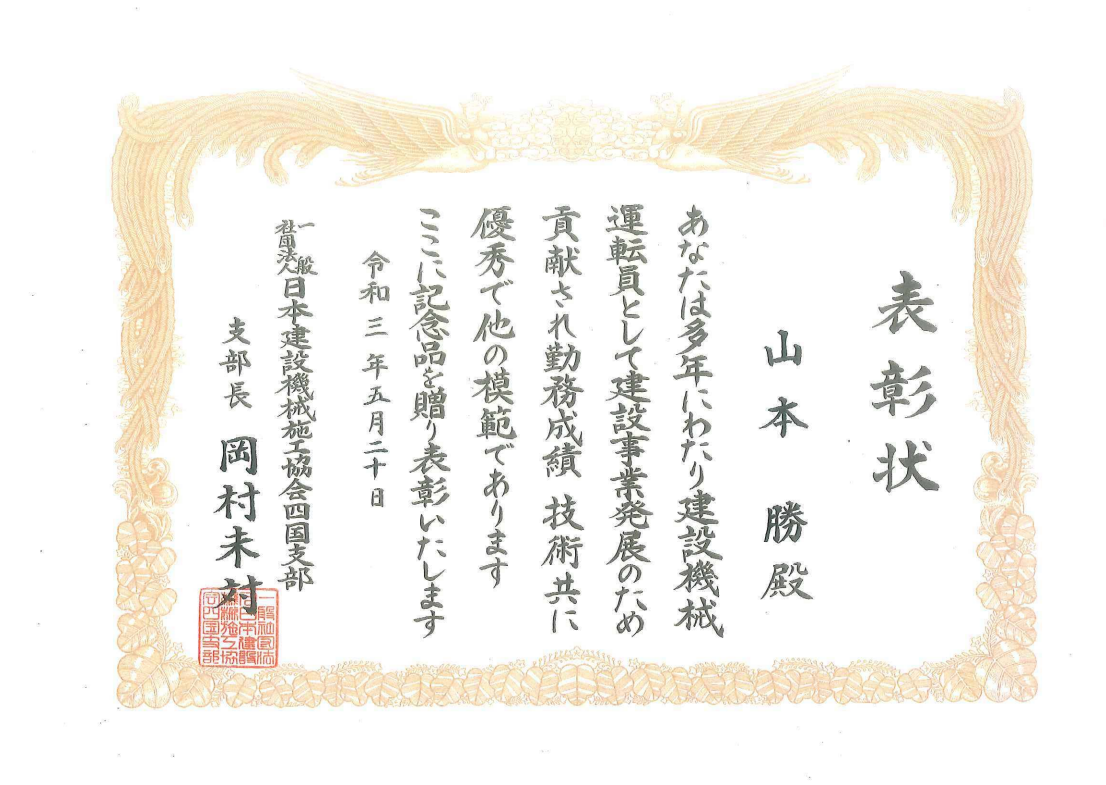 表彰状
山本 勝殿
あなたは多年にわたり建設機械
運転員として建設事業発展のため
貢献され勤務成績 技術共に
優秀で他の模範であります
ここに記念品を贈り表彰いたします
令和三年五月二十日
一般社団法人日本建設機械施工協会四国支部
支部長 岡村未対